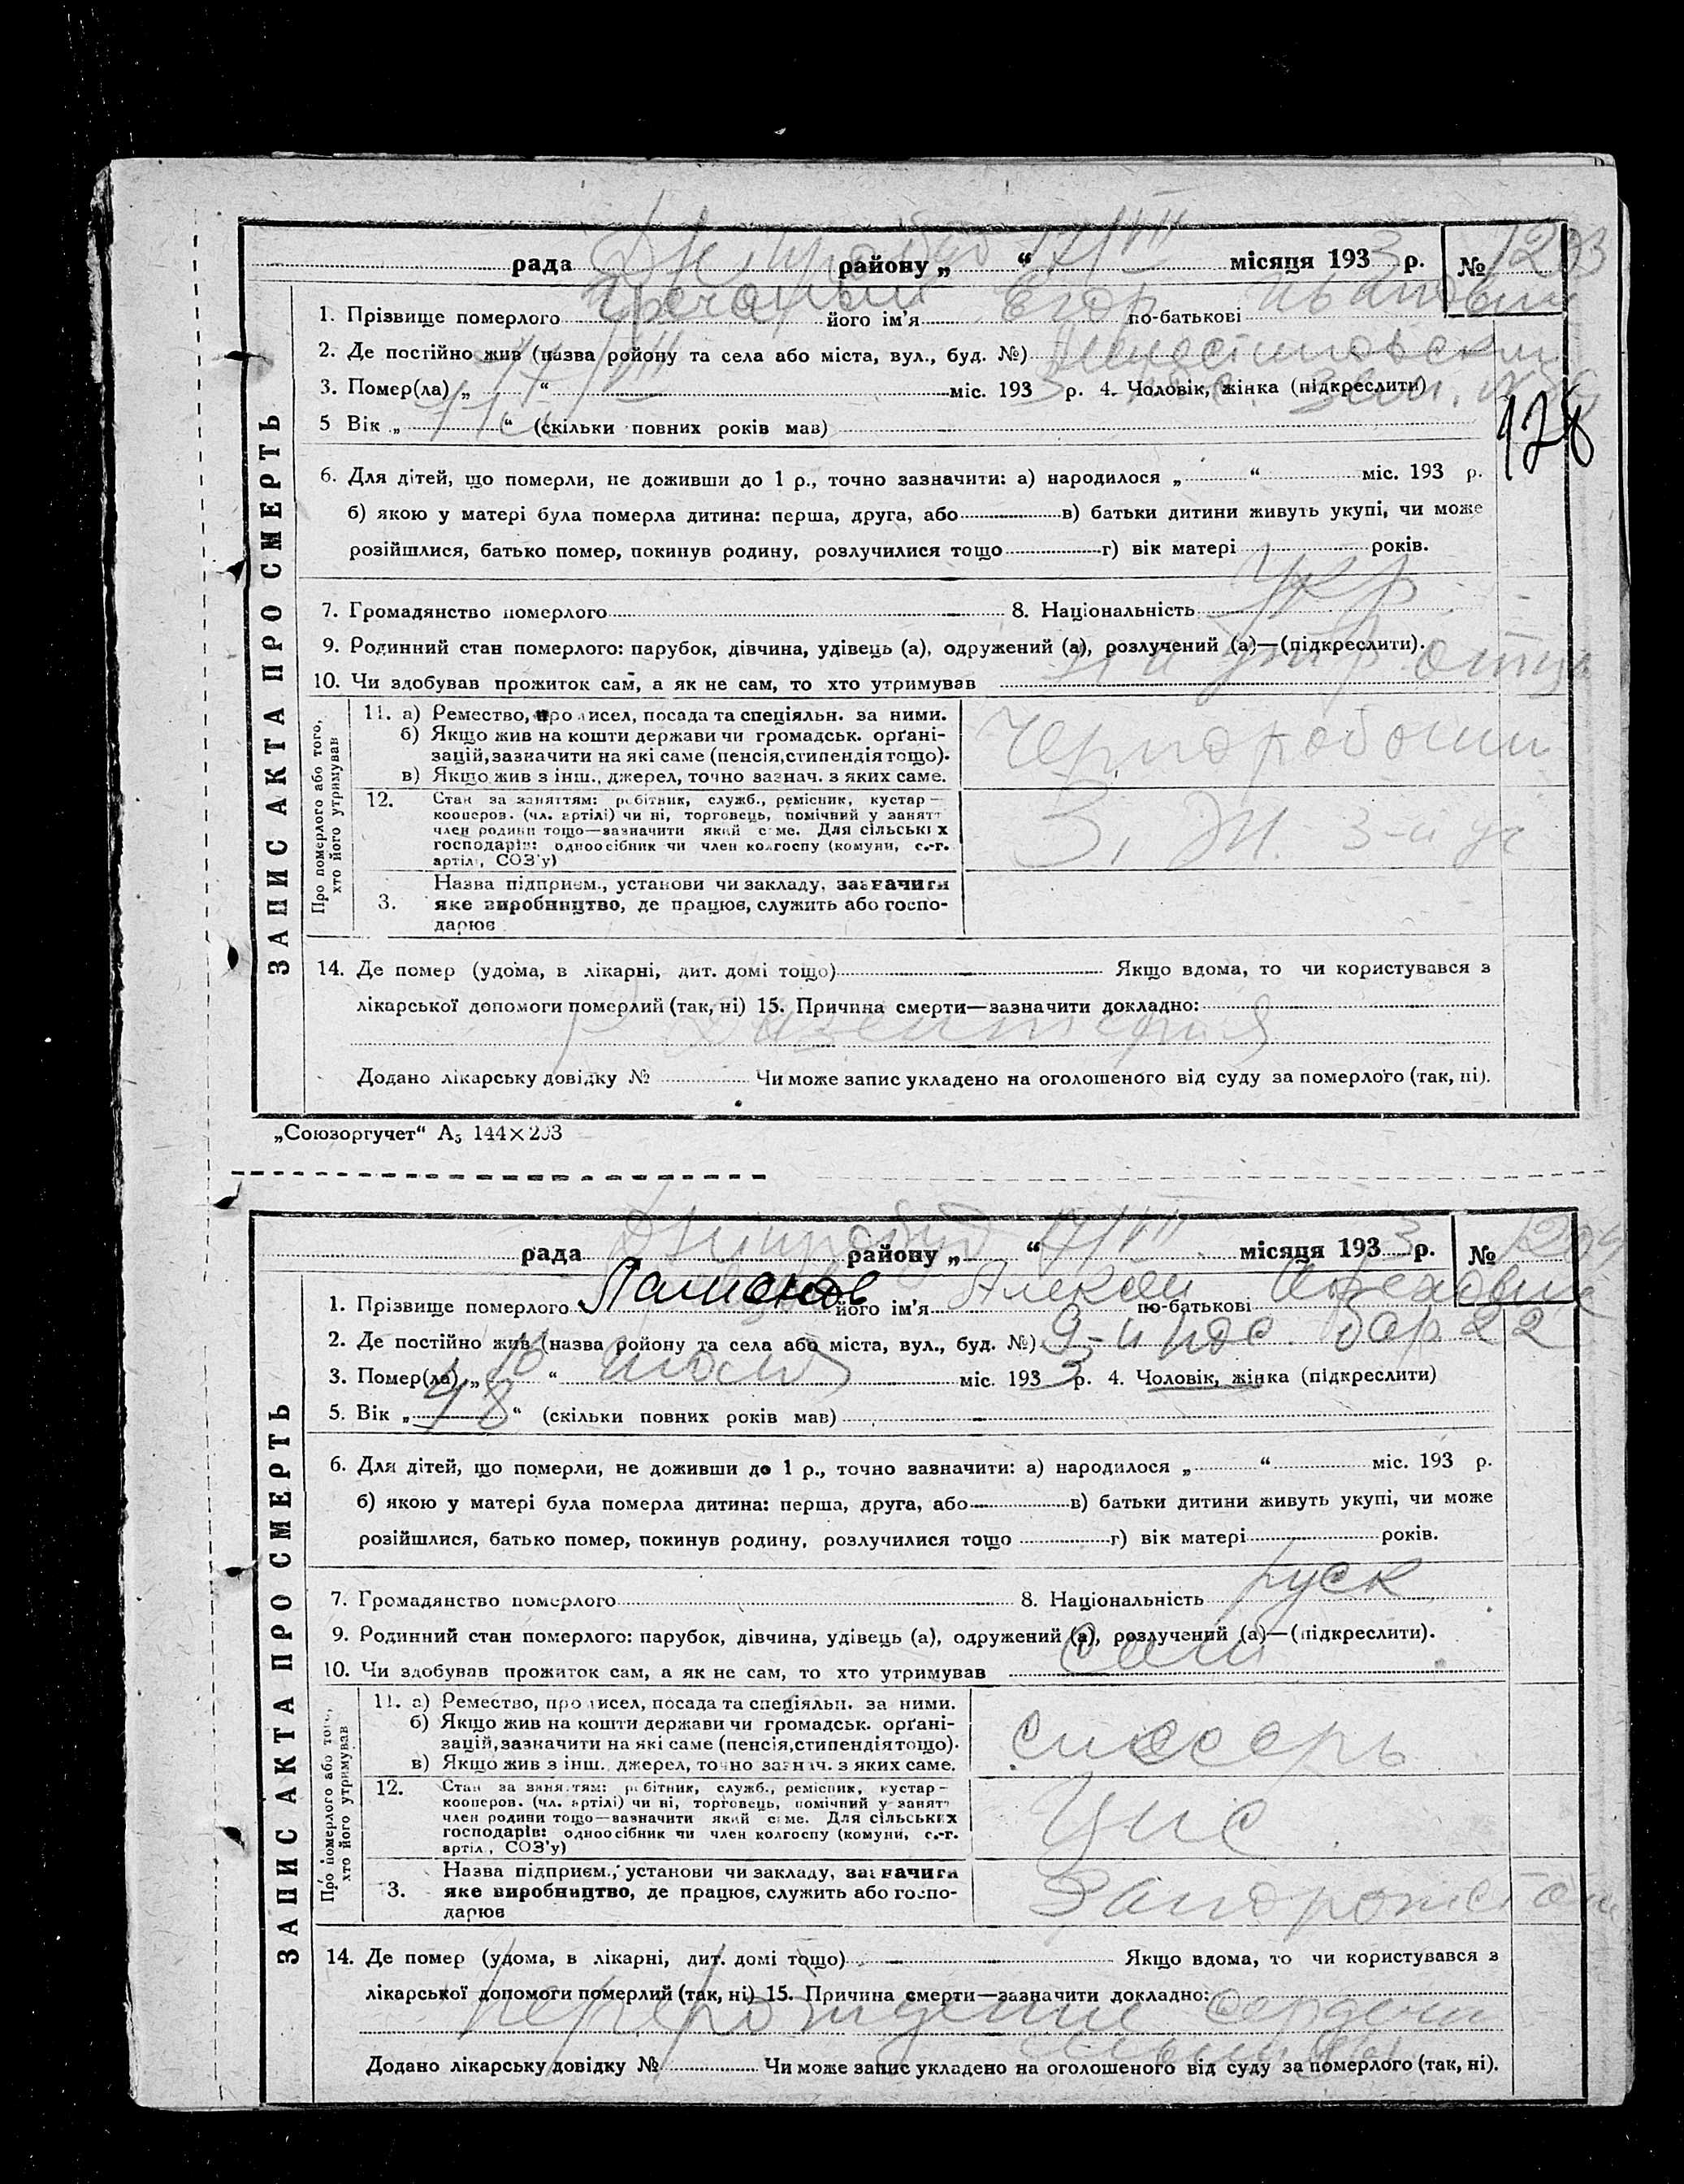 рада Дніпробуд району „ “ 17/VII місяця 1933 р. № 1203
1. Прізвище померлого Гречаный його ім’я Егор по-батькові Иванович
2. Де постійно жив (назва району та села або міста, вул., буд. №)
3. Помер(ла) „ 17/VII “ міс. 1933 р. 4. Чоловік, жінка (підкреслити)
128
5 Вік „ “ (скільки повних років мав)
6. Для дітей, що померли, не доживши до 1 р., точно зазначити: а) народилося „ “ міс. 193 р.
б) якою у матері була померла дитина: перша, друга, або в) батьки дитини живуть укупі, чи може
розійшлися, батько помер, покинув родину, розлучилися тощо г) вік матері років.
7. Громадянство померлого 8. Національність Укр
9. Родинний стан померлого: парубок, дівчина, удівець (а), одружений (а), розлучений (а)—(підкреслити).
10. Чи здобував прожиток сам, а як не сам, то хто утримував на ижд. отца
ЗАПИС АКТА ПРО СМЕРТЬ
Про померлого або того, хто його утримував
11. а) Ремество, промисел, посада та спеціяльн. за ними.
б) Якщо жив на кошти держави чи громадськ. орґані-
зацій, зазначити на які саме (пенсія, стипендія тощо).
в) Якщо жив з інш., джерел, точно зазнач. з яких саме.
Чернорабочий
12. Стан за заняттям: робітник, служб., ремісник, кустар —
кооперов. (чл. артілі) чи ні, торговець, помічний у занятт
член родини тощо—зазначити який саме. Для сільських
господарів: одноосібник чи член колгоспу (комуни, с.-г.
артілі, СОЗ’у)
3-й уч
Назва підприєм., установи чи закладу, зазначити
3. яке виробництво, де працює, служить або госпо-
дарює
14. Де помер (удома, в лікарні, дит. домі тощо) Якщо вдома, то чи користувався з
лікарської допомоги померлий (так, ні) 15. Причина смерти—зазначити докладно:
дизентерия
Додано лікарську довідку № Чи може запис укладено на оголошеного від суду за померлого (так, ні).
„Союзоргучет“ А5 144×203
рада Дніпробуд району „ “ 17/VII місяця 1933 р. № 1204
1. Прізвище померлого його ім’я Алексей по-батькові
2. Де постійно жив (назва району та села або міста, вул., буд. №) 9-й пос. бар 22
3. Помер(ла) „ 16 “ июля міс. 1933 р. 4. Чоловік, жінка (підкреслити)
5. Вік „ 48 “ (скільки повних років мав)
6. Для дітей, що померли, не доживши до 1 р., точно зазначити: а) народилося „ “ міс. 193 р.
б) якою у матері була померла дитина: перша, друга, або в) батьки дитини живуть укупі, чи може
розійшлися, батько помер, покинув родину, розлучилися тощо г) вік матері років.
7. Громадянство померлого 8. Національність руск
9. Родинний стан померлого: парубок, дівчина, удівець (а), одружений (а), розлучений (а)—(підкреслити).
10. Чи здобував прожиток сам, а як не сам, то хто утримував Сам
ЗАПИС АКТА ПРО СМЕРТЬ
Про померлого або того, хто його утримував
11. а) Ремество, промисел, посада та спеціяльн. за ними.
б) Якщо жив на кошти держави чи громадськ. орґані-
зацій, зазначити на які саме (пенсія, стипендія тощо).
в) Якщо жив з інш. джерел, точно зазнач. з яких саме.
слесарь
12. Стан за заняттям: робітник, служб., ремісник, кустар —
кооперов. (чл. артілі) чи ні, торговець, помічний у занятт
член родини тощо—зазначити який саме. Для сільських
господарів: одноосібник чи член колгоспу (комуни, с.-г.
артіл, СОЗ’у)
Назва підприєм., установи чи закладу, зазначити
3. яке виробництво, де працює, служить або госпо-
дарює
Запорожсталь
14. Де помер (удома, в лікарні, дит. домі тощо) Якщо вдома, то чи користувався з
лікарської допомоги померлий (так, ні) 15. Причина смерти—зазначити докладно:
перерождение сердечн
мышцы
Додано лікарську довідку № Чи може запис укладено на оголошеного від суду за померлого (так, ні).